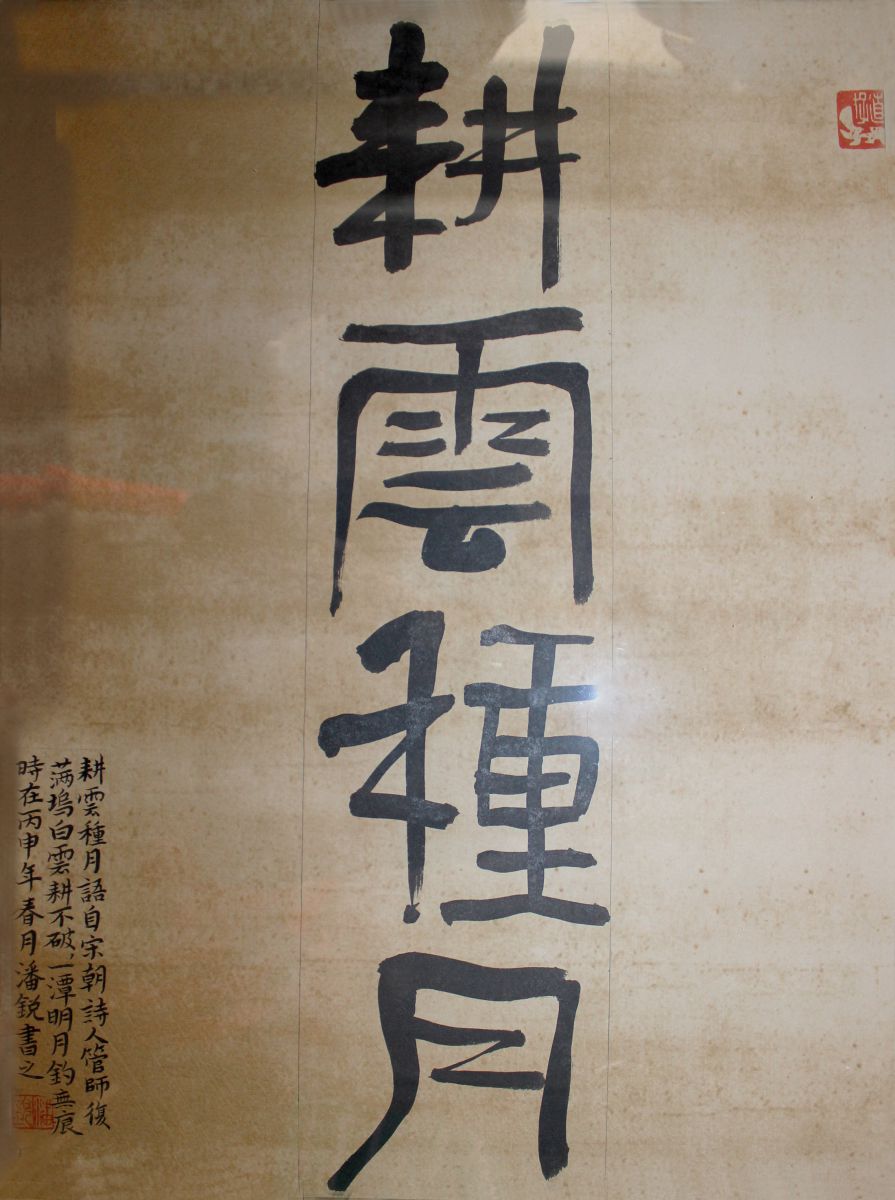 耕雲種月
耕雲種月語自宋朝詩人管師復
满塢白雲耕不破，一潭明月釣無痕
時在丙申年春月潘鋭書之